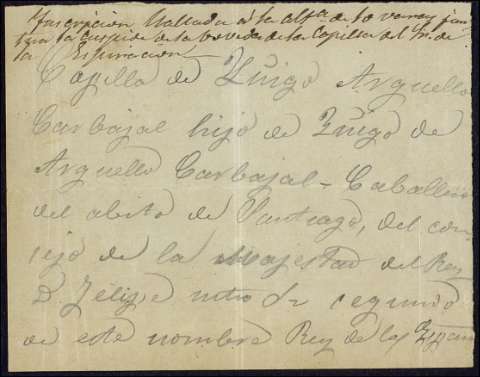 Inscripcion hallada á la alt.ª de 10 varas jun-
to a la cuspide de la boveda de la Capilla del m. de
la Espiracion
Capilla de Yñigo Arguello
Carbajal hijo de Yñigo de
Arguello Carbajal - Caballero
del abito de Santiago, del con-
sejo de la Majestad del Rey
D. Felipe ntro Sr segundo
de este nombre Rey de las Españas